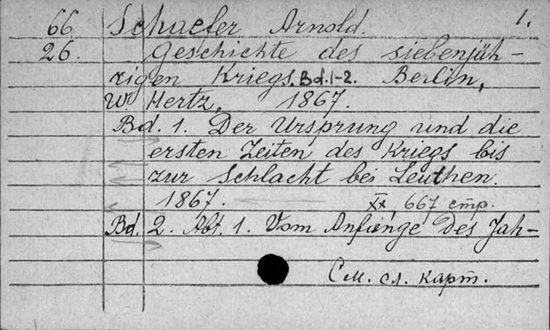 66 Schaefer Arnold. 1.
26. Geschichte des siebenjäh-
rigen Kriegs. Bd. 1-2. Berlin,
W. Hertz, 1867.
Bd. 1. Der Ursprung und die
ersten Zeiten des Kriegs bis
zur Schlacht bei Leuthen.
1867. XX, 667 стр.
Bd. 2. Abt. 1. Vom Anfange des Jah-
См. сл. карт.